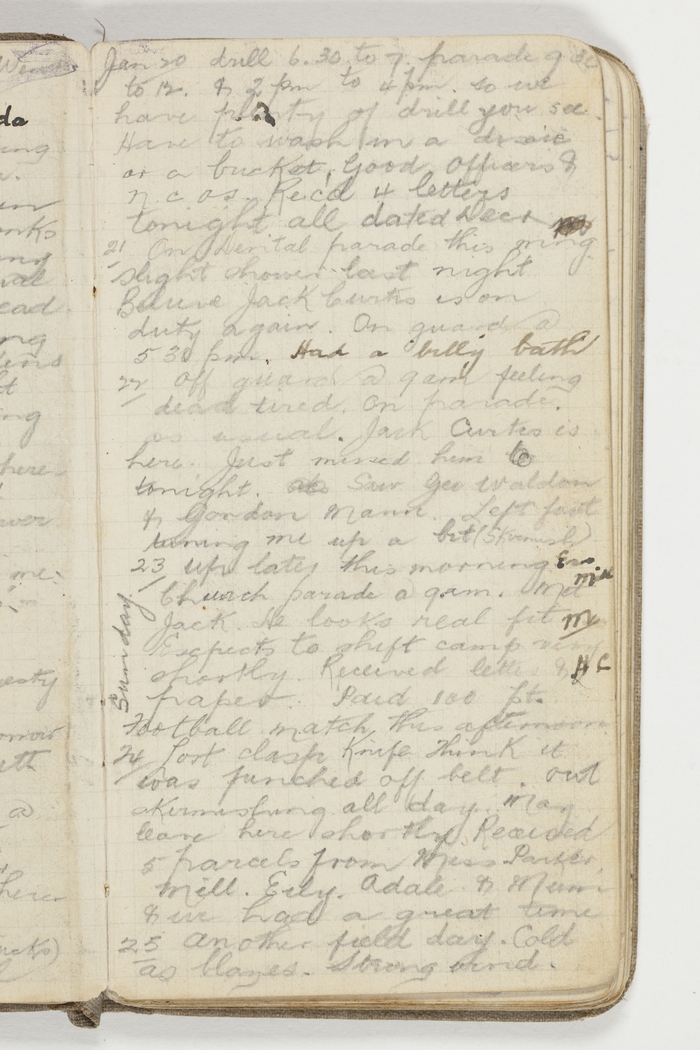 Jan 20 drill 6.30 to 7. parade 9 30
to 12. & 2 pm to 4 pm. so we
have plenty of drill you see.
Have to wash in a
or a bucket. Good officers &
n.c.os. Recd 4 letters
tonight all dated Decr
21 On Dental parade this mng.
slight shower last night
Believe Jack Curtis is on
duty again. On guard @
5 30 pm. Had a billy bath
22 Off guard @ 9 am feeling
dead tired. On parade.
as usual. Jack Curtis is
here. Just missed him to
tonight. Saw Geo Waldon
& Gordon Mann. Left foot
me up a bit (Skirmish)
23 Up late this morning
Sunday.
Church parade @ 9 am. Met
Mill
Jack. He looks real fit
Expects to shift camp very
shortly. Received letter &
paper. Paid 100 pt.
Football match this afternoon
24 Lost clasp Knife Think it
was punched off belt. Out
skirmishing all day. May
leave here shortly. Received
5 parcels from Miss Parker,
Mill. Eily. Adale & Mum
& we had a great time
25 another field day. Cold
as blazes. Strong wind.
ing
an
ead.
ng
t
ing
here
me.
esty
@
ucks)